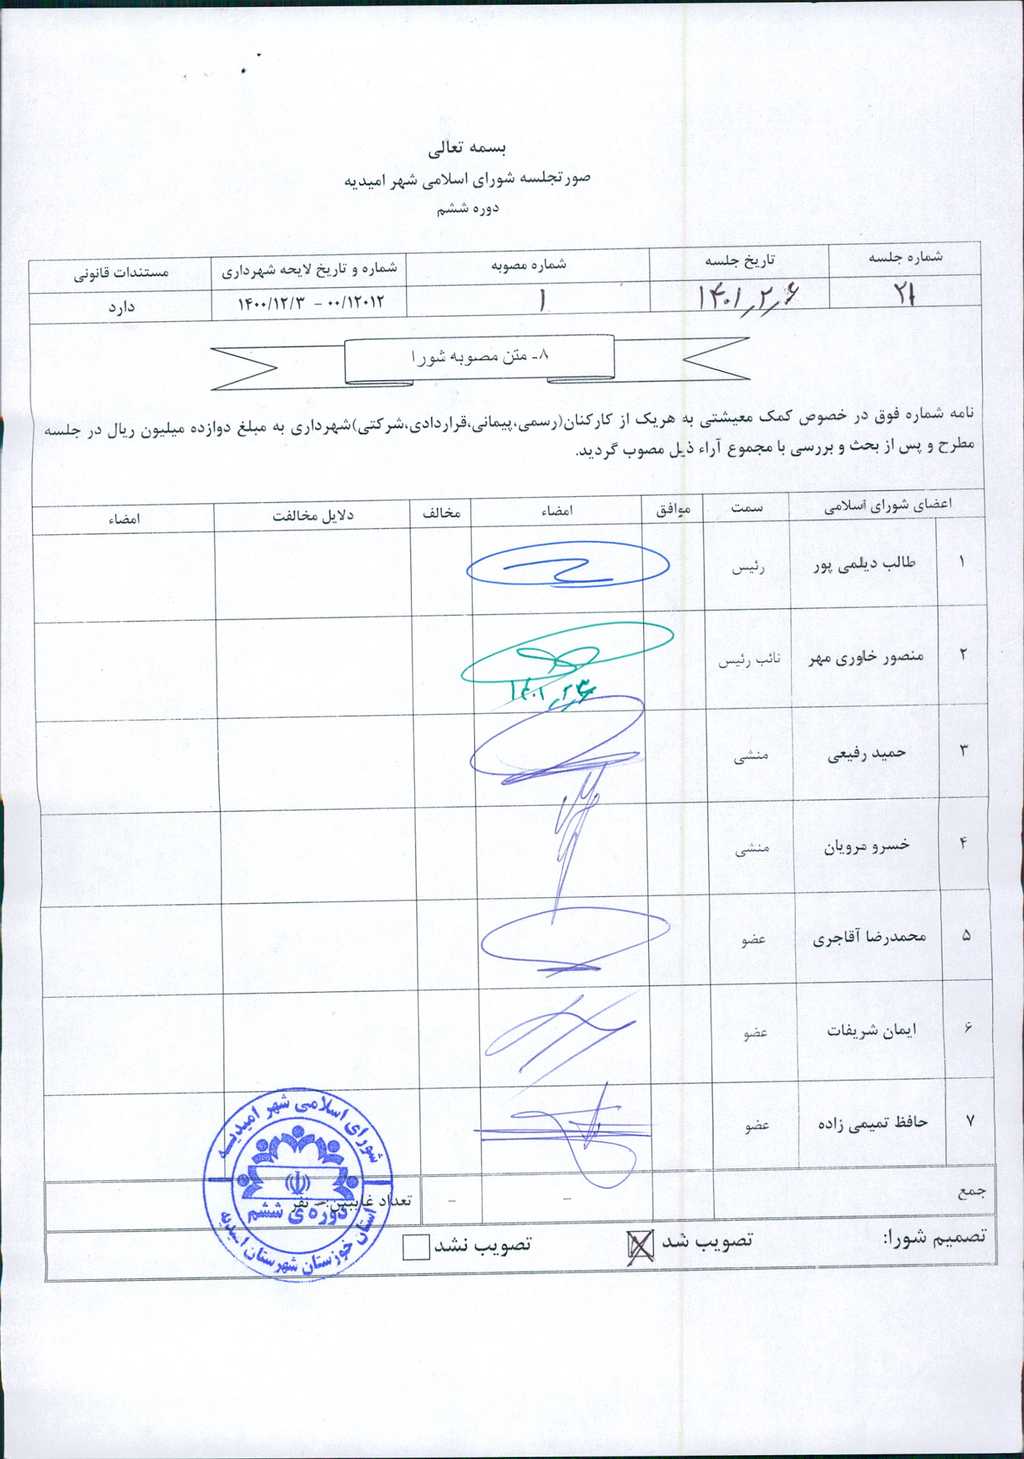 بسمه تعالی
صورتجلسه شورای اسلامی شهر امیدیه
دوره ششم
شماره جلسه تاریخ جلسه شماره مصوبه شماره و تاریخ لایحه شهرداری مستندات قانونی
۲۱ ۱۴۰۱٫۲٫۶ ۱ ۰۰/۱۲۰۱۲ - ۱۴۰۰/۱۲/۳ دارد
۸- متن مصوبه شورا
نامه شماره فوق در خصوص کمک معیشتی به هریک از کارکنان(رسمی،پیمانی،قراردادی،شرکتی)شهرداری به مبلغ دوازده میلیون ریال در جلسه
مطرح و پس از بحث و بررسی با مجموع آراء ذیل مصوب گردید.
اعضای شورای اسلامی سمت موافق امضاء مخالف دلایل مخالفت امضاء
۱ طالب دیلمی پور رئیس
۲ منصور خاوری مهر نائب رئیس
۳ حمید رفیعی منشی
۴ خسرو مرویان منشی
۵ محمدرضا آقاجری عضو
۶ ایمان شریفات عضو
۷ حافظ تمیمی زاده عضو
جمع - - تعداد غایبین: - نفر
تصمیم شورا: تصویب شد تصویب نشد
شورای اسلامی شهر امیدیه
دوره ی ششم
استان خوزستان شهرستان امیدیه